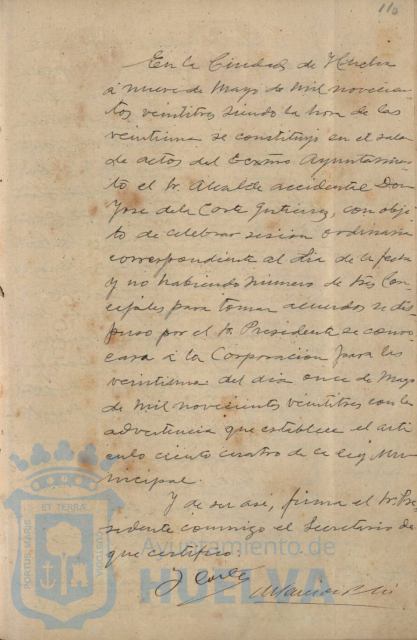 110
En la Ciudad de Huelva
á nueve de Mayo de Mil novecien
tos veintitres siendo la hora de las
veintiuna se constituyó en el salon
de actos del Excmo Ayuntamien
to el Sr. Alcalde accidental Don
José de la Corte Gutierrez, con obje
to de celebrar sesion ordinaria
correspondiente al dia de la fecha
y no habiendo número de Sres Con
cejales para tomar acuerdos se dis
puso por el Sr. Presidente se convo
cara á la Corporacion para las
veintiuna del dia once de Mayo
de Mil novecientos veintitres con la
advertencia que establece el arti
culo ciento cuatro de la Ley Mu
nicipal.
Y de ser asi, firma el Sr. Pre
sidente conmigo el Secretario de
que certifico.
J Corte
PORTUS MARIS ET TERRAE CUSTODIA
Ayuntamiento de
HUELVA